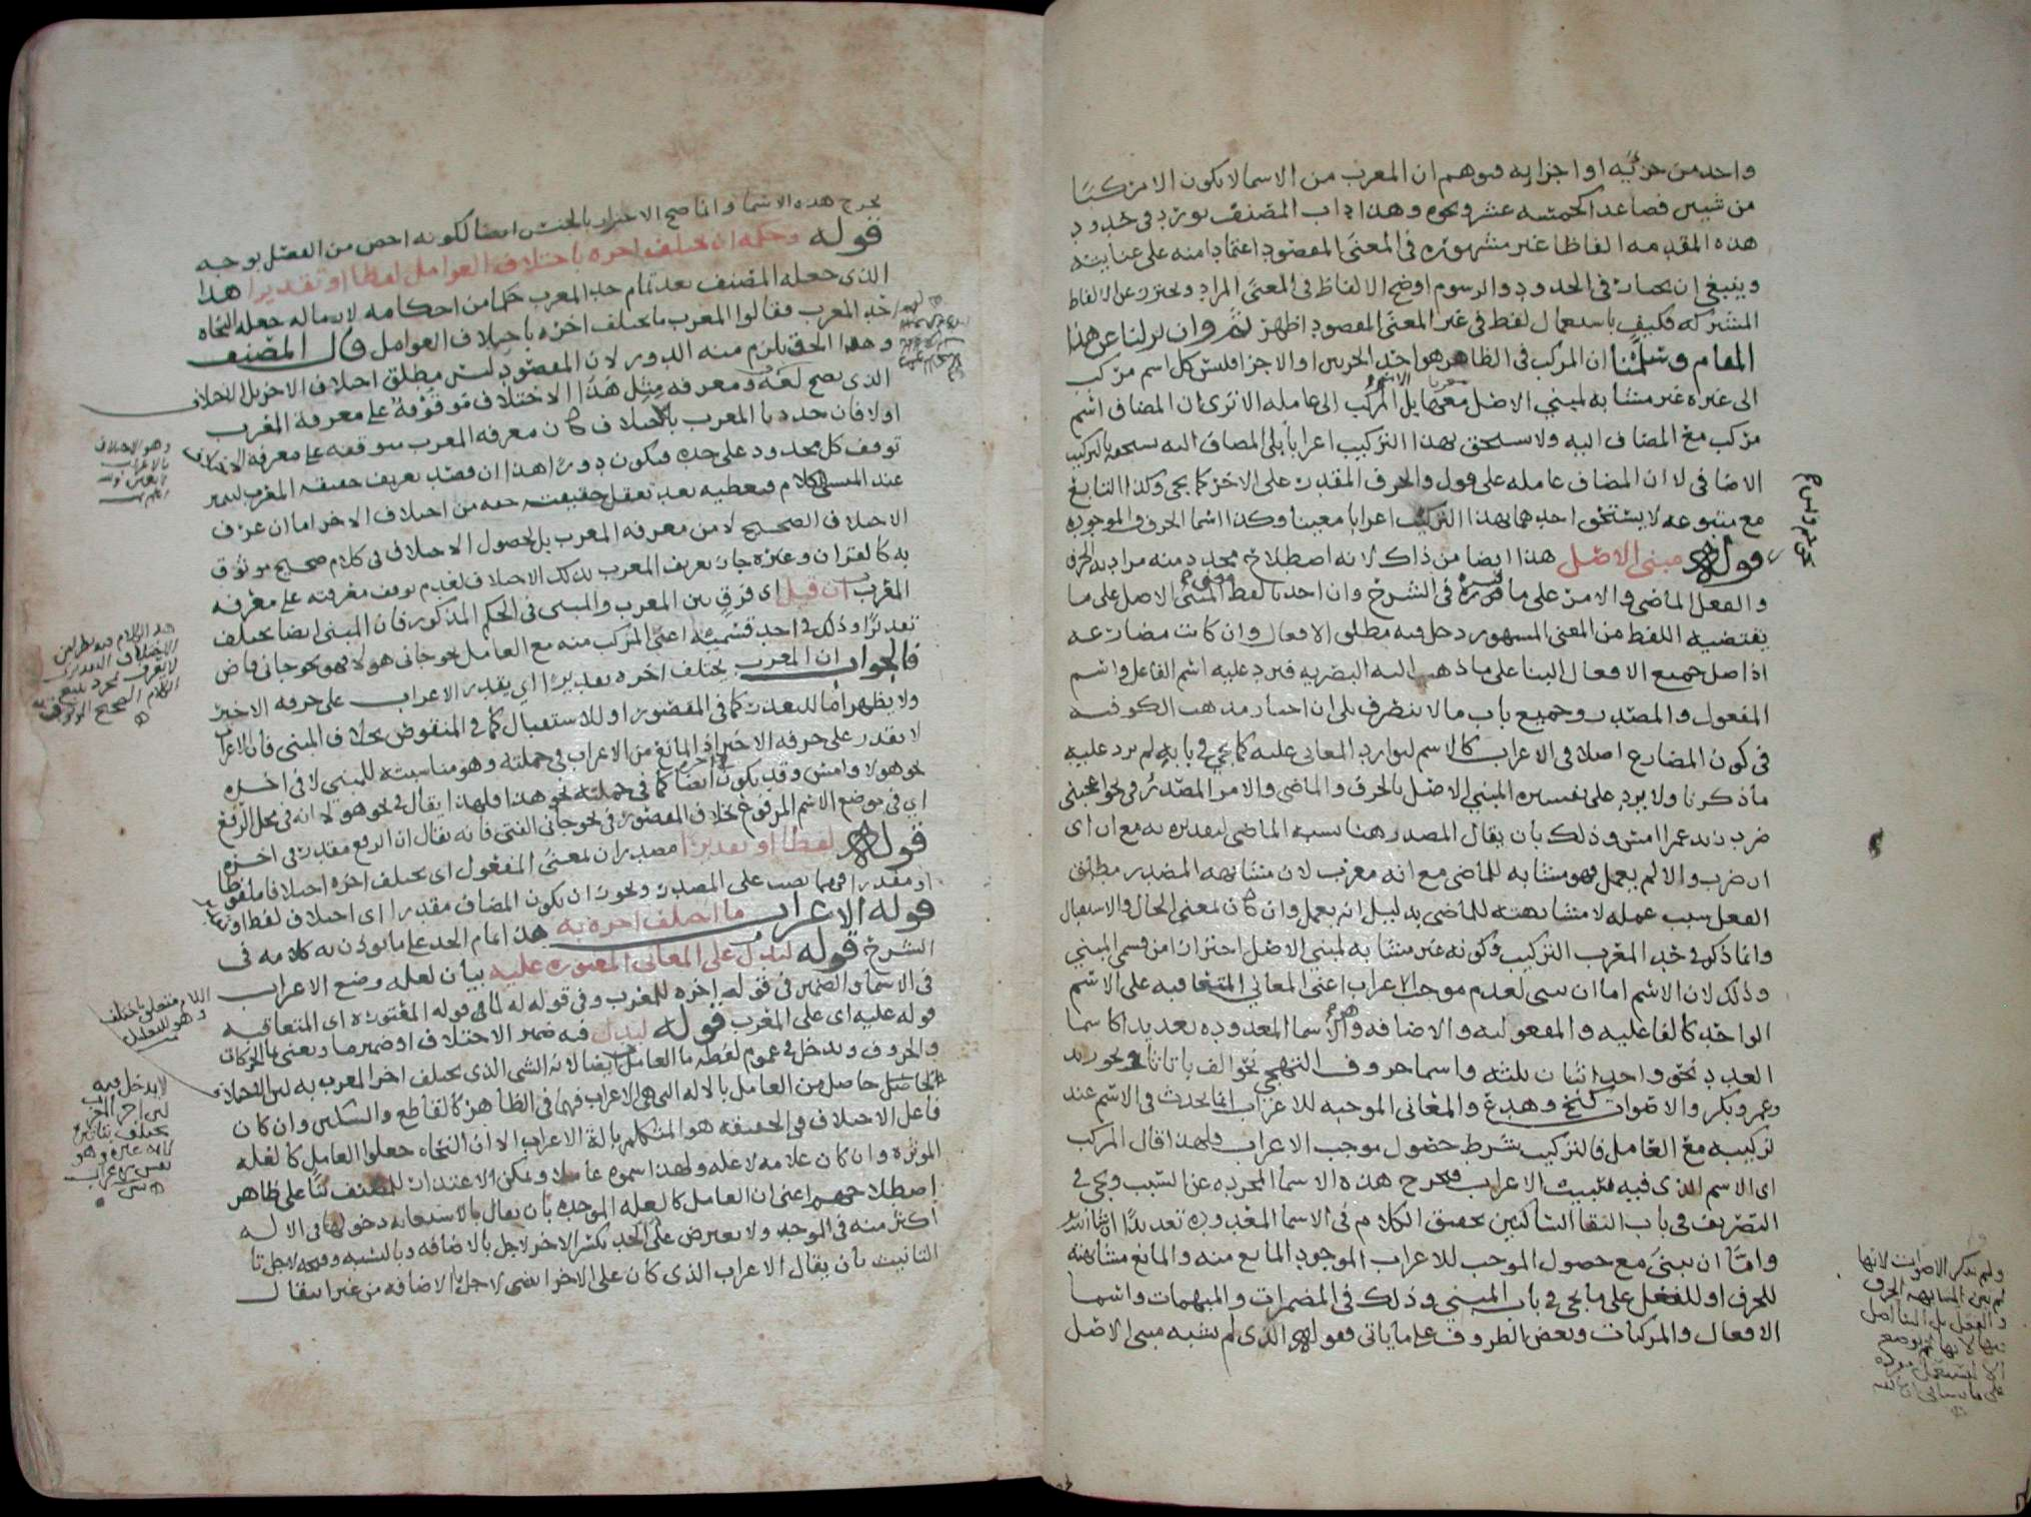 واحد من جزئيه او اجزايه فيوهم ان المعرب من الاسما لا يكون الا مركبا
من شيين فصاعدا كخمسه عشر ونحوه وهذا داب المصنف يورد فى حدود
هذه المقدمه الفاظا غير مشهوره فى المعنى المقصود اعتمادا منه على عنايته
وينبغى ان يختار فى الحدود والرسوم اوضح الالفاظ فى المعنى المراد ويحترز عن الالفاظ
المشتركه فكيف باستعمال لفظ فى غير المعنى المقصود اظهر ثم وان نزلنا عن هذا
المقام وسلمنا ان المركب فى الظاهر هو احد الجزين او الاجزا فليس كل اسم مركب
الى غيره غير مشابه لمبنى الاصل معربا بل الاسم المركب الى عامله الا ترى ان المضاف اسم
مركب مع المضاف اليه ولا يستحق بهذا التركيب اعرابا بلى المضاف اليه يستحقه بالتركيب
الاضافى لان المضاف عامله على قول والحرف المقدر على الاخر كما يجى وكذا التابع
مع متبوعه لا يستحق احدهما بهذا التركيب اعرابا معينا وكذا اسما الحروف الموجوده
قوله مبنى الاصل هذا ايضا من ذاك لانه اصطلاح مجدد منه مراده الحرف
والفعل الماضى والامر على ما فسره فى الشرح وان اخذنا لفظ المبنى الاصل على ما
يقتضيه اللفظ من المعنى المشهور دخل فيه مطلق الافعال وان كانت مضارعه
اذ اصل جميع الافعال البنا على ما ذهب اليه البصريه فيرد عليه اسم الفاعل واسم
المفعول والمصدر وجميع باب ما لا ينصرف بلى ان اختار مذهب الكوفيه
فى كون المضارع اصلا فى الاعراب كالاسم لتوارد المعانى عليه كما يجى فى بابه لم يرد عليه
ما ذكرنا ولا يرد على تفسيره المبنى الاصل بالحرف والماضى والامر المصدر فى نحو اعجبنى
ضرب زيد عمرا امس وذلك بان يقال المصدر هنا يشبه الماضى لتقديره به مع ان اى
ان ضرب والا لم يعمل فهو مشابه للماضى مع انه معرب لان مشابهه المصدر مطلق
الفعل سبب عمله لا مشابهته للماضى بدليل انه يعمل وان كان لمعنى الحال والاستقبال
وانما ذكر فى حد المعرب التركيب وكونه غير مشابه لمبنى الاصل احترازا من قسمى المبنى
وذلك لان الاسم اما ان يبنى لعدم موجب الاعراب اعنى المعانى المتعاقبه على الاسم
الواحد كالفاعليه والمفعوليه والاضافه وهى الاسما المعدوده تعديدا كاسما
العدد نحو واحد اثنان ثلثه واسما حروف التهجى نحو الف با تا ثا ونحو زيد
وعمرو بكر والاصوات كنخ وهدع والمعانى الموجبه للاعراب انما يحدث فى الاسم عند
تركيبه مع العامل فالتركيب شرط حصول موجب الاعراب فلهذا قال المركب
اى الاسم الذى فيه سبب الاعراب فيخرج هذه الاسما المجرده عن السبب ويجى فى
التصريف فى باب التقا الساكنين تحقيق الكلام فى الاسما المعدوده تعديدا ان شا الله
واما ان يبنى مع حصول الموجب للاعراب الموجود المانع منه والمانع مشابهته
للحرف او للفعل على ما يجى فى باب المبنى وذلك فى المضمرات والمبهمات واسما
الافعال والمركبات وبعض الظروف على ما ياتى فقوله الذى لم يشبه مبنى الاصل
ولم يذكر الاصوات لانها
لم تبن لمشابهه الحرف
والفعل بل البنا اصل
فيها لانها لم توضع
الا لتستعمل مفرده
على ما سياتى ان شا الله
يخرج هذه الاسما وانما صح الاحتراز بالجنس ايضا لكونه اخص من الفصل بوجه
قوله وحكمه ان يختلف اخره باختلاف العوامل لفظا او تقديرا هذا
الذى جعله المصنف بعد تمام حد المعرب حكما من احكامه لازما له جعله النحاه
حد المعرب فقالوا المعرب ما يختلف اخره باختلاف العوامل قال المصنف
وهذا الحد يلزم منه الدور لان المقصود ليس مطلق اختلاف الاخر بل الاختلاف
الذى يصح لغه ومعرفه مثل هذا الاختلاف موقوفه على معرفه المعرب
اولا فان حددنا المعرب بالاختلاف كان معرفه المعرب متوقفه على معرفه الاختلاف
توقف كل محدود على حده فيكون دورا هذا ان قصد تعريف حقيقه المعرب ليميز
عند المتكلم الكلام فيعطيه بعد تعقل حقيقته حقه من اختلاف الاخر اما ان عرف
الاختلاف الصحيح لا من معرفه المعرب بل لحصول الاختلاف فى كلام صحيح موثوق
به كالقران وغيره جاز تعريف المعرب بذلك الاختلاف لعدم توقف معرفته على معرفه
المعرب ان قيل اى فرق بين المعرب والمبنى فى الحكم المذكور فان المبنى ايضا يختلف
تقديرا وذلك فى احد قسميه اعنى المركب منه مع العامل نحو جانى هولا فهو نحو جانى قاض
فالجواب ان المعرب يختلف اخره تقديرا اى يقدر الاعراب على حرفه الاخير
ولا يظهر اما للتعذر كما فى المقصور او للاستثقال كما فى المنقوص بخلاف المبنى فان الاعراب
لا يقدر على حرفه الاخير اذ المانع من الاعراب فى جملته وهو مناسبته للمبنى لا فى اخره
نحو هولا وامس وقد يكون فى اخره ايضا كما فى جملته نحو هذا فلهذا يقال فى نحو هولا انه فى محل الرفع
اى فى موضع الاسم المرفوع بخلاف المقصور فى نحو جانى الفتى فانه يقال ان الرفع مقدر فى اخره
قوله لفظا او تقديرا مصدران لمعنى المفعول اى يختلف اخره اختلافا ملفوظا
او مقدرا فهما نصب على المصدر ويجوز ان يكون المضاف مقدرا اى اختلاف لفظ او تقدير
قوله الاعراب ما اختلف اخره به هذا تمام الحد على ما يوذن به كلامه فى
الشرح قوله ليدل على المعانى المعتوره عليه بيان لعله وضع الاعراب
فى الاسما والضمير فى قوله اخره للمعرب وفى قوله له لما فى قوله المعتوره اى المتعاقبه
قوله عليه اى على المعرب قوله ليدل فيه ضمير الاختلاف او ضمير ما ويعنى بما الحركات
والحروف ويدخل فى عموم لفظه ما العامل ايضا لانه الشى الذى يختلف اخر المعرب به لان الاختلاف
الحاصل حاصل من العامل بالاله التى هى الاعراب فهما فى الظاهر كالقاطع والسكين وان كان
فاعل الاختلاف فى الحقيقه هو المتكلم بالة الاعراب الا ان النحاه جعلوا العامل كالعله
الموثره وان كان علامه لا عله ولهذا سموه عاملا ويمكن الاعتذار للمصنف بنا على ظاهر
اصطلاحهم اعنى ان العامل كالعله الموجده بان يقال بالاستعانه دخولها فى الاله
اكثر منه فى الموجد ولا يعترض على الحد بكسر الاخر لاجل بالاضافه وبالنسبه وفتحه لاجل تا
التانيث بان يقال الاعراب الذى كان على الاخر انتفى لاجل يا الاضافه من غير انتقال
وهو الاختلاف
بالاعراب
هذا الكلام فيه نظر لان
الاختلاف التقديرى
لا يعرف بمجرد تتبع
الكلام الصحيح الموثوق به
اللام متعلق باختلف
وهو للتعليل
لا يدخل فيه